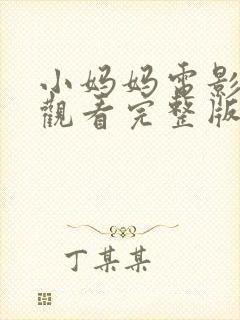 小妈妈电影
觀看完整版
丁某某